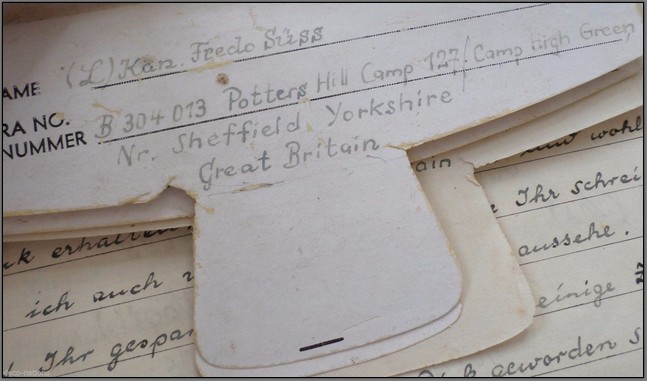 AME (L) Kan. Fredo Süss
RA NO.
NUMMER B 304 013 Potters Hill Camp 127/Camp High Green
Nr. Sheffield Yorkshire
Great Britain
ain
und wohl
Ihr schrei
k erhalten.
aussehe.
ich auch
einige
Ihr gespa
geworden s